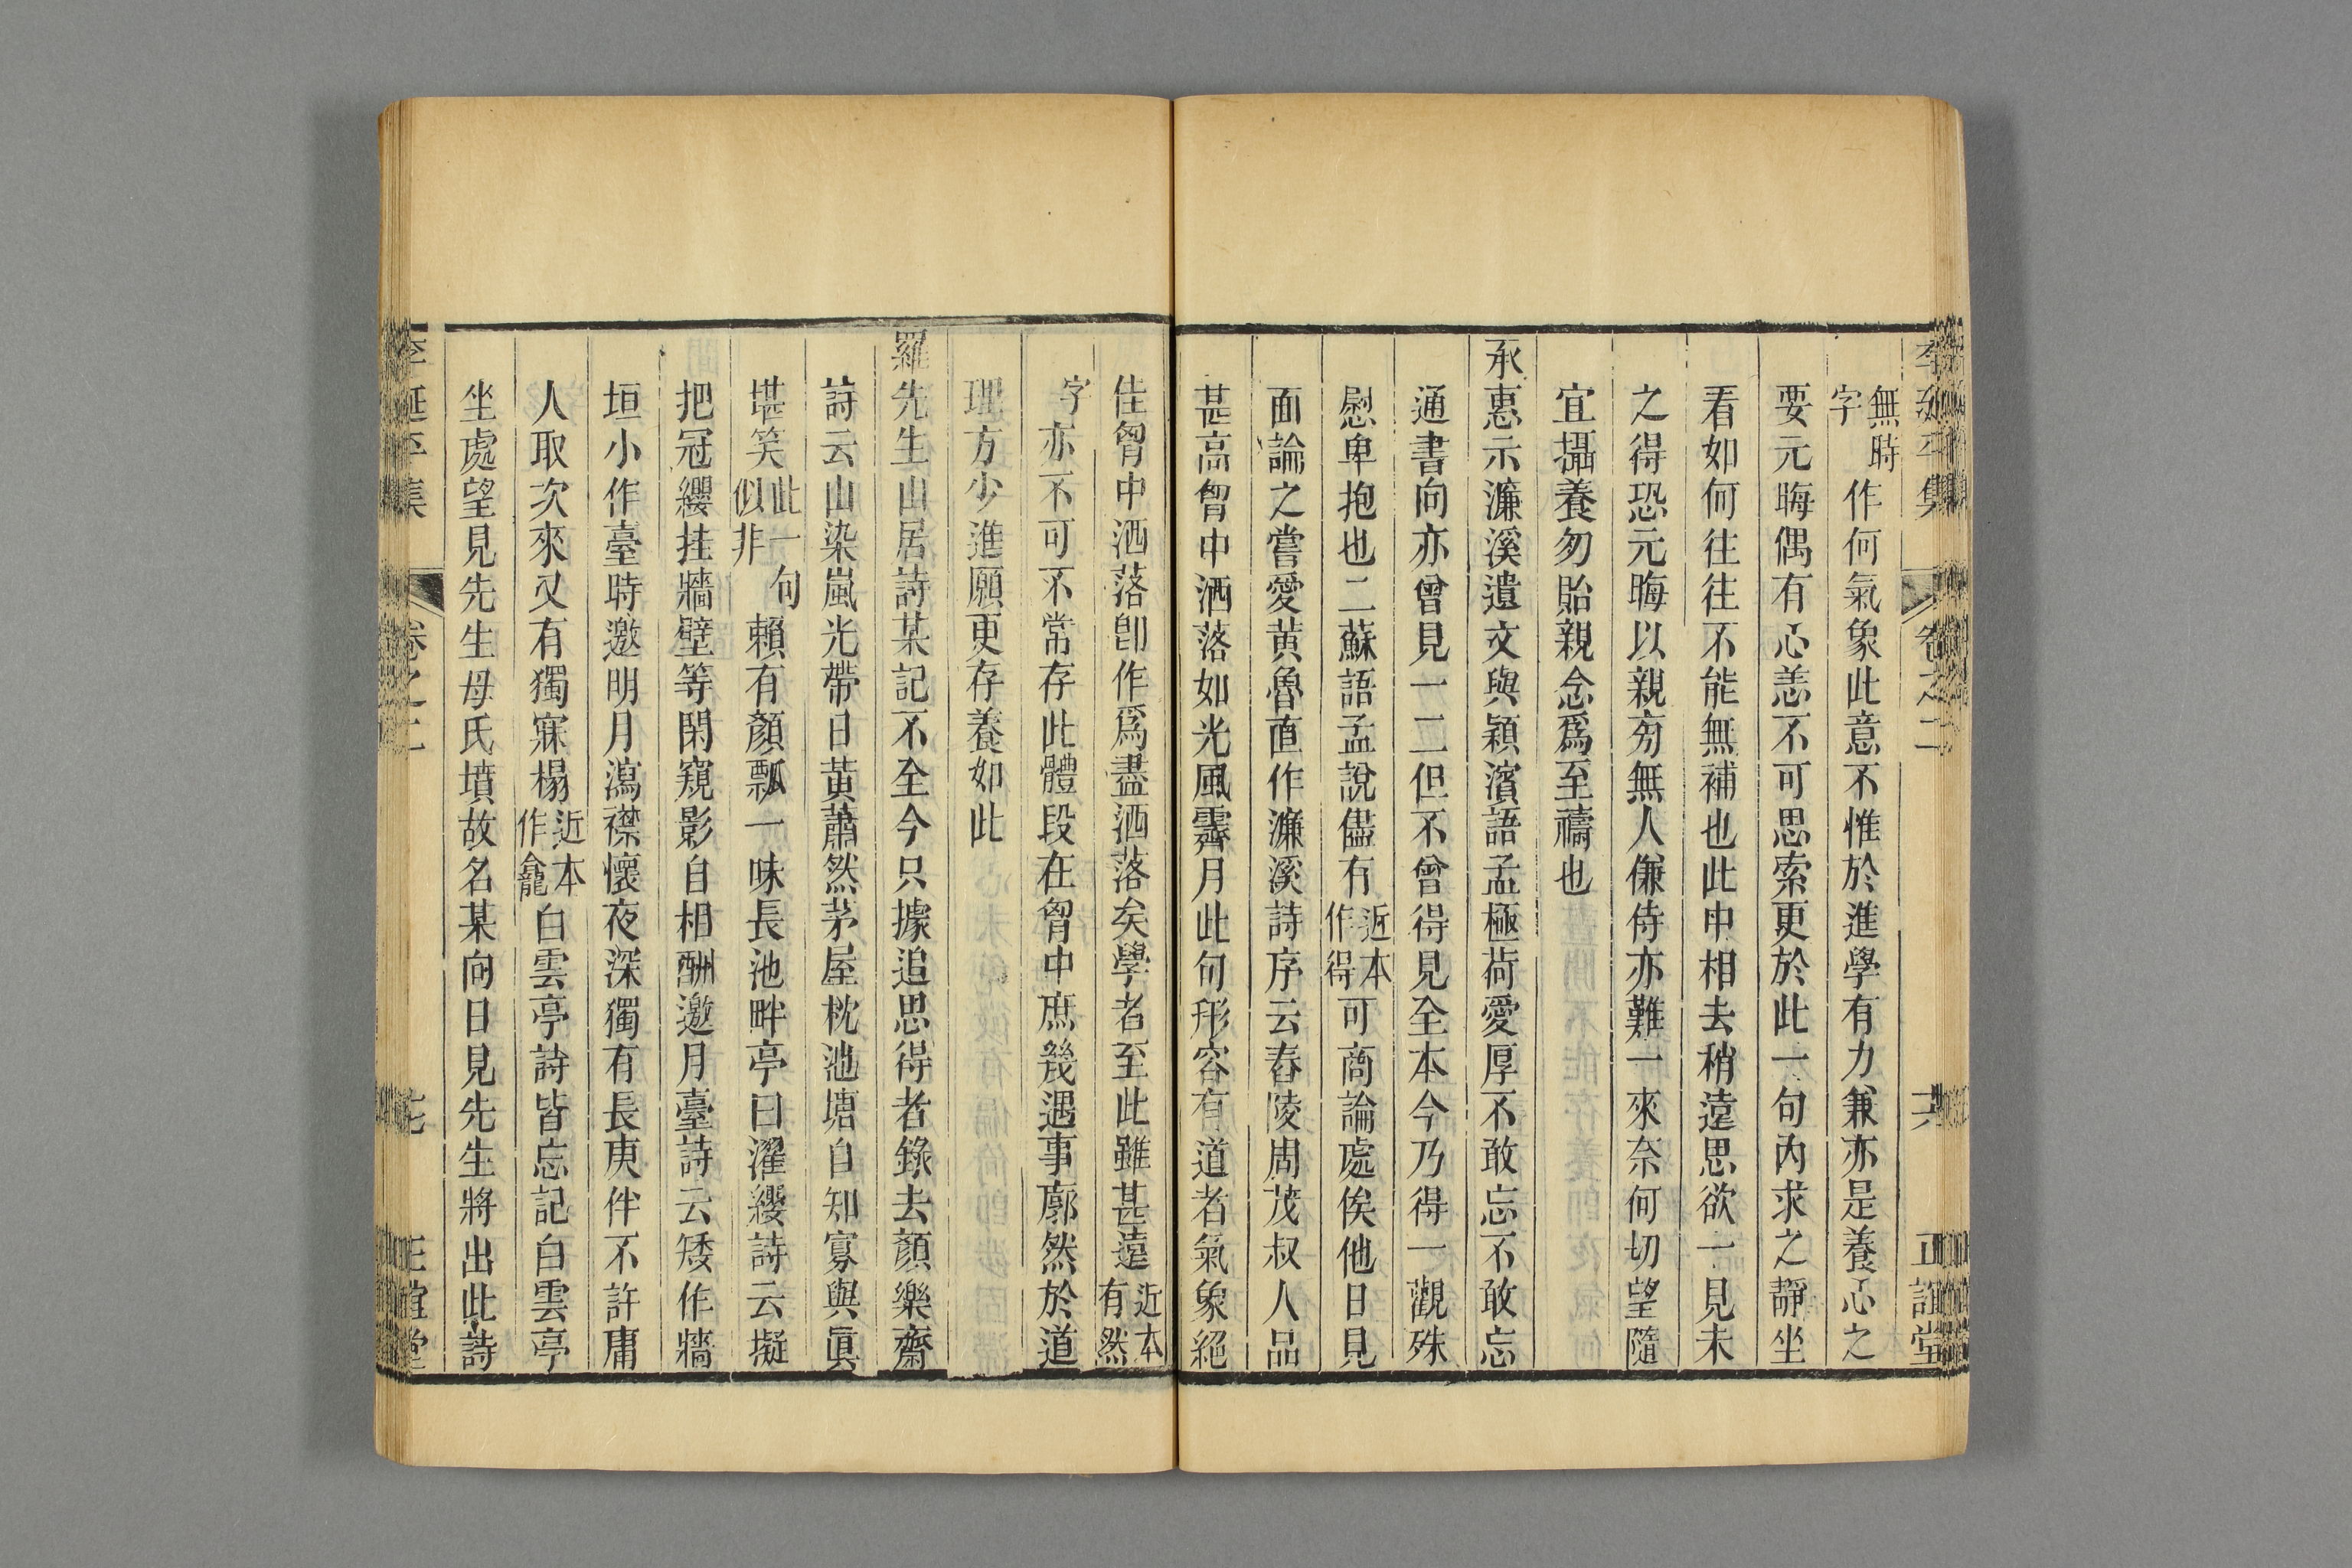 李延平集 卷之二 六 正誼堂
無時字作何氣象此意不惟於進學有力兼亦是養心之
要元晦偶有心恙不可思索更於此一句內求之靜坐
看如何往往不能無補也此中相去稍遠思欲一見未
之得恐元晦以親旁無人傔侍亦難一來奈何切望隨
宜攝養勿貽親念爲至禱也
承惠示濂溪遺文與穎濱語孟極荷愛厚不敢忘不敢忘
通書向亦曾見一二但不曾得見全本今乃得一觀殊
慰卑抱也二蘇語孟說儘有近本作得可商論處俟他日見
面論之嘗愛黃魯直作濂溪詩序云舂陵周茂叔人品
甚高胷中洒落如光風霽月此句形容有道者氣象絕
佳胷中洒落卽作爲盡洒落矣學者至此雖甚遠近本有然
字亦不可不常存此體段在胷中庶幾遇事廓然於道
理方少進願更存養如此
羅先生山居詩某記不至今只據追思得者錄去顏樂齋
詩云山染嵐光帶日黃蕭然茅屋枕池塘自知寡與眞
堪笑此一句似非賴有顏瓢一味長池畔亭曰濯纓詩云擬
把冠纓挂牆壁等閑窺影自相酬邀月臺詩云矮作牆
垣小作臺時邀明月瀉襟懷夜深獨有長庚伴不許庸
人取次來又有獨寐榻近本作龕白雲亭詩皆忘記白雲亭
坐處望見先生母氏墳故名某向日見先生將出此詩
李延平集 卷之二 正誼堂